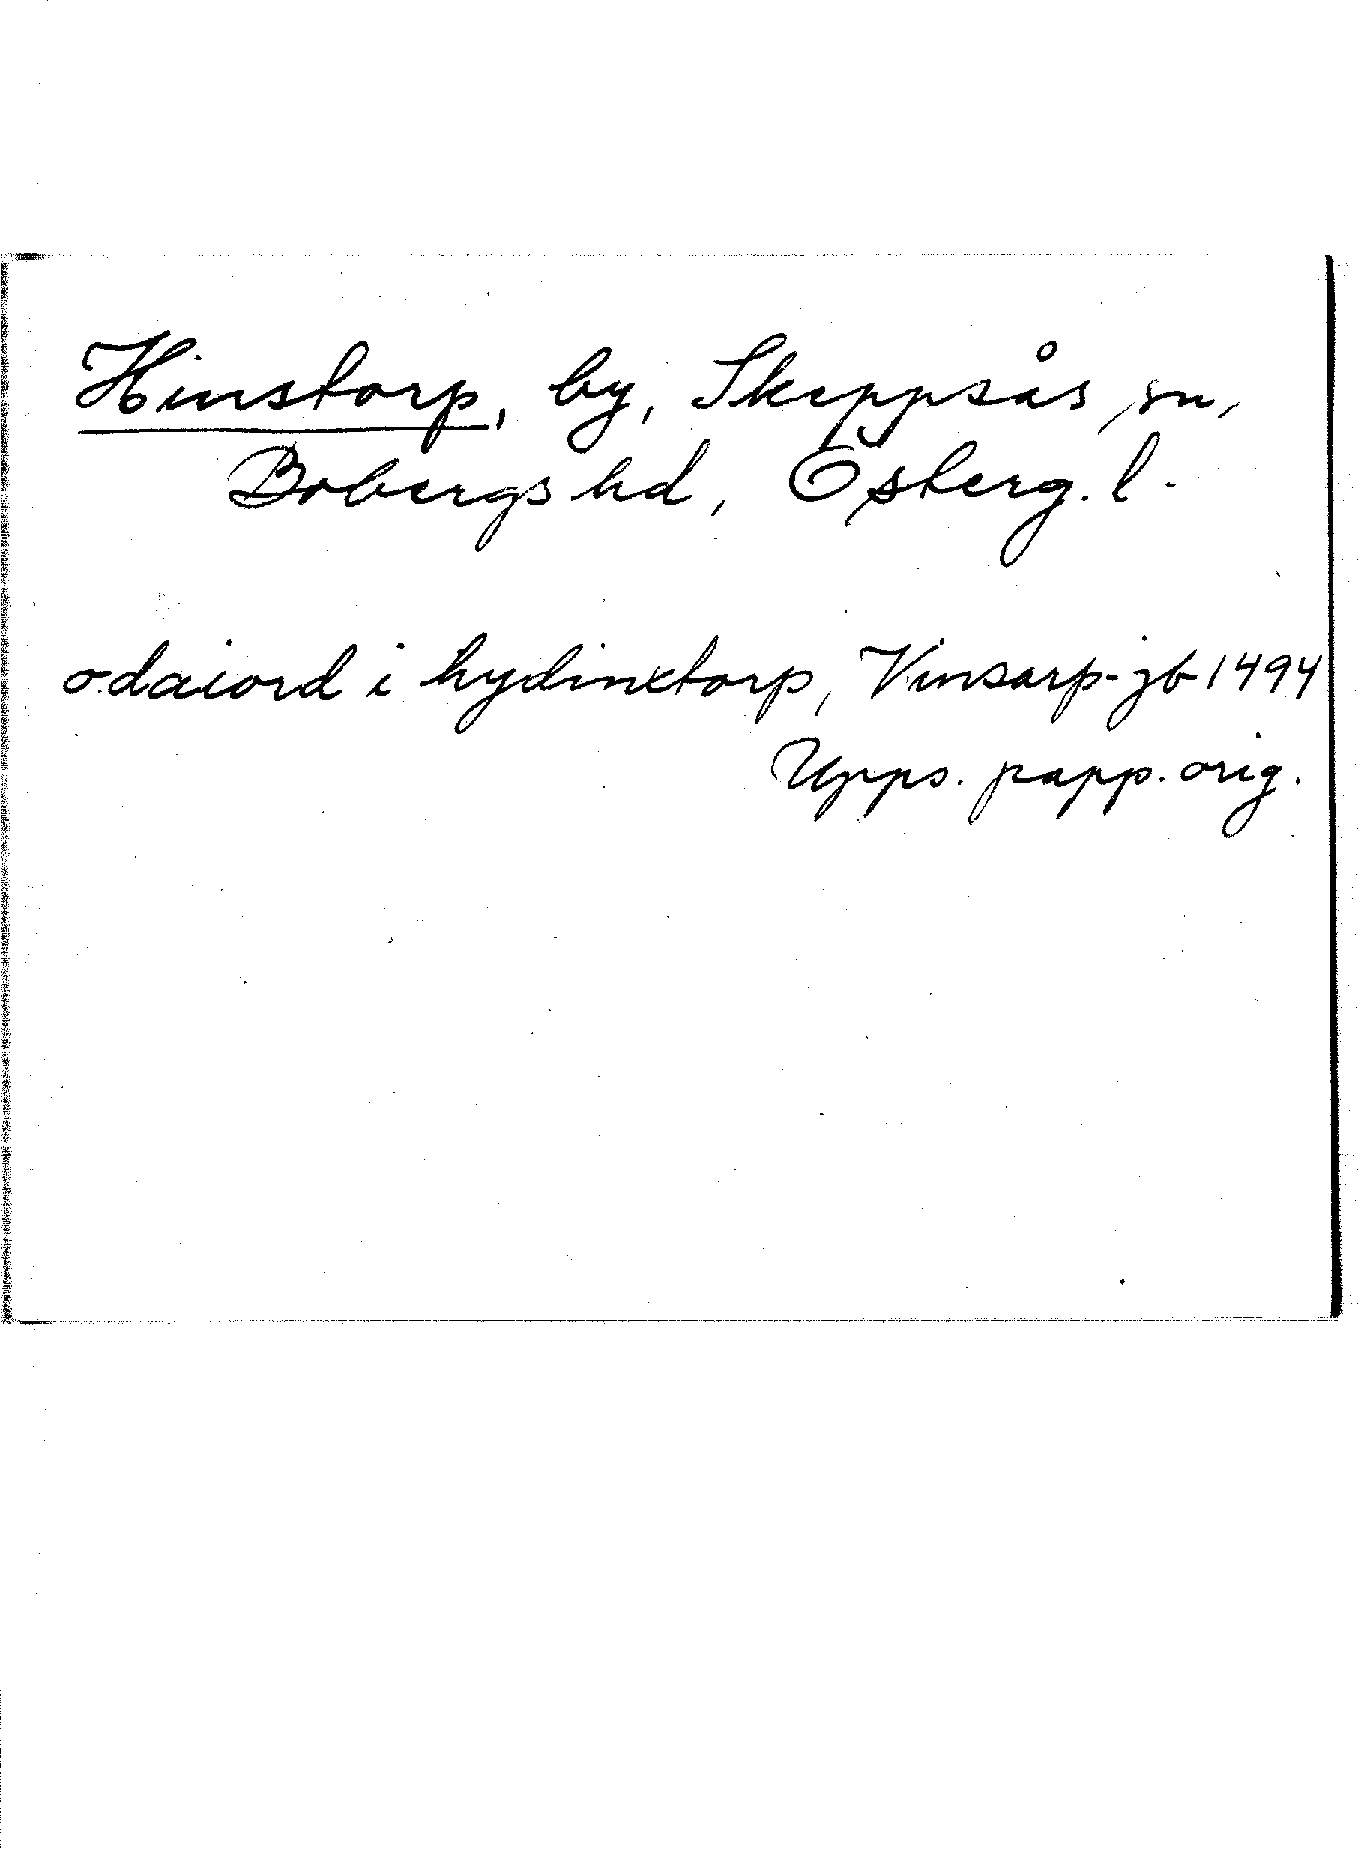 Hinstorp, by, Skeppsås sn,
Bobergs hd, Österg. l.
odaiord i hydinxtorp, Vinsarp-jb 1494
Upps. papp. orig.